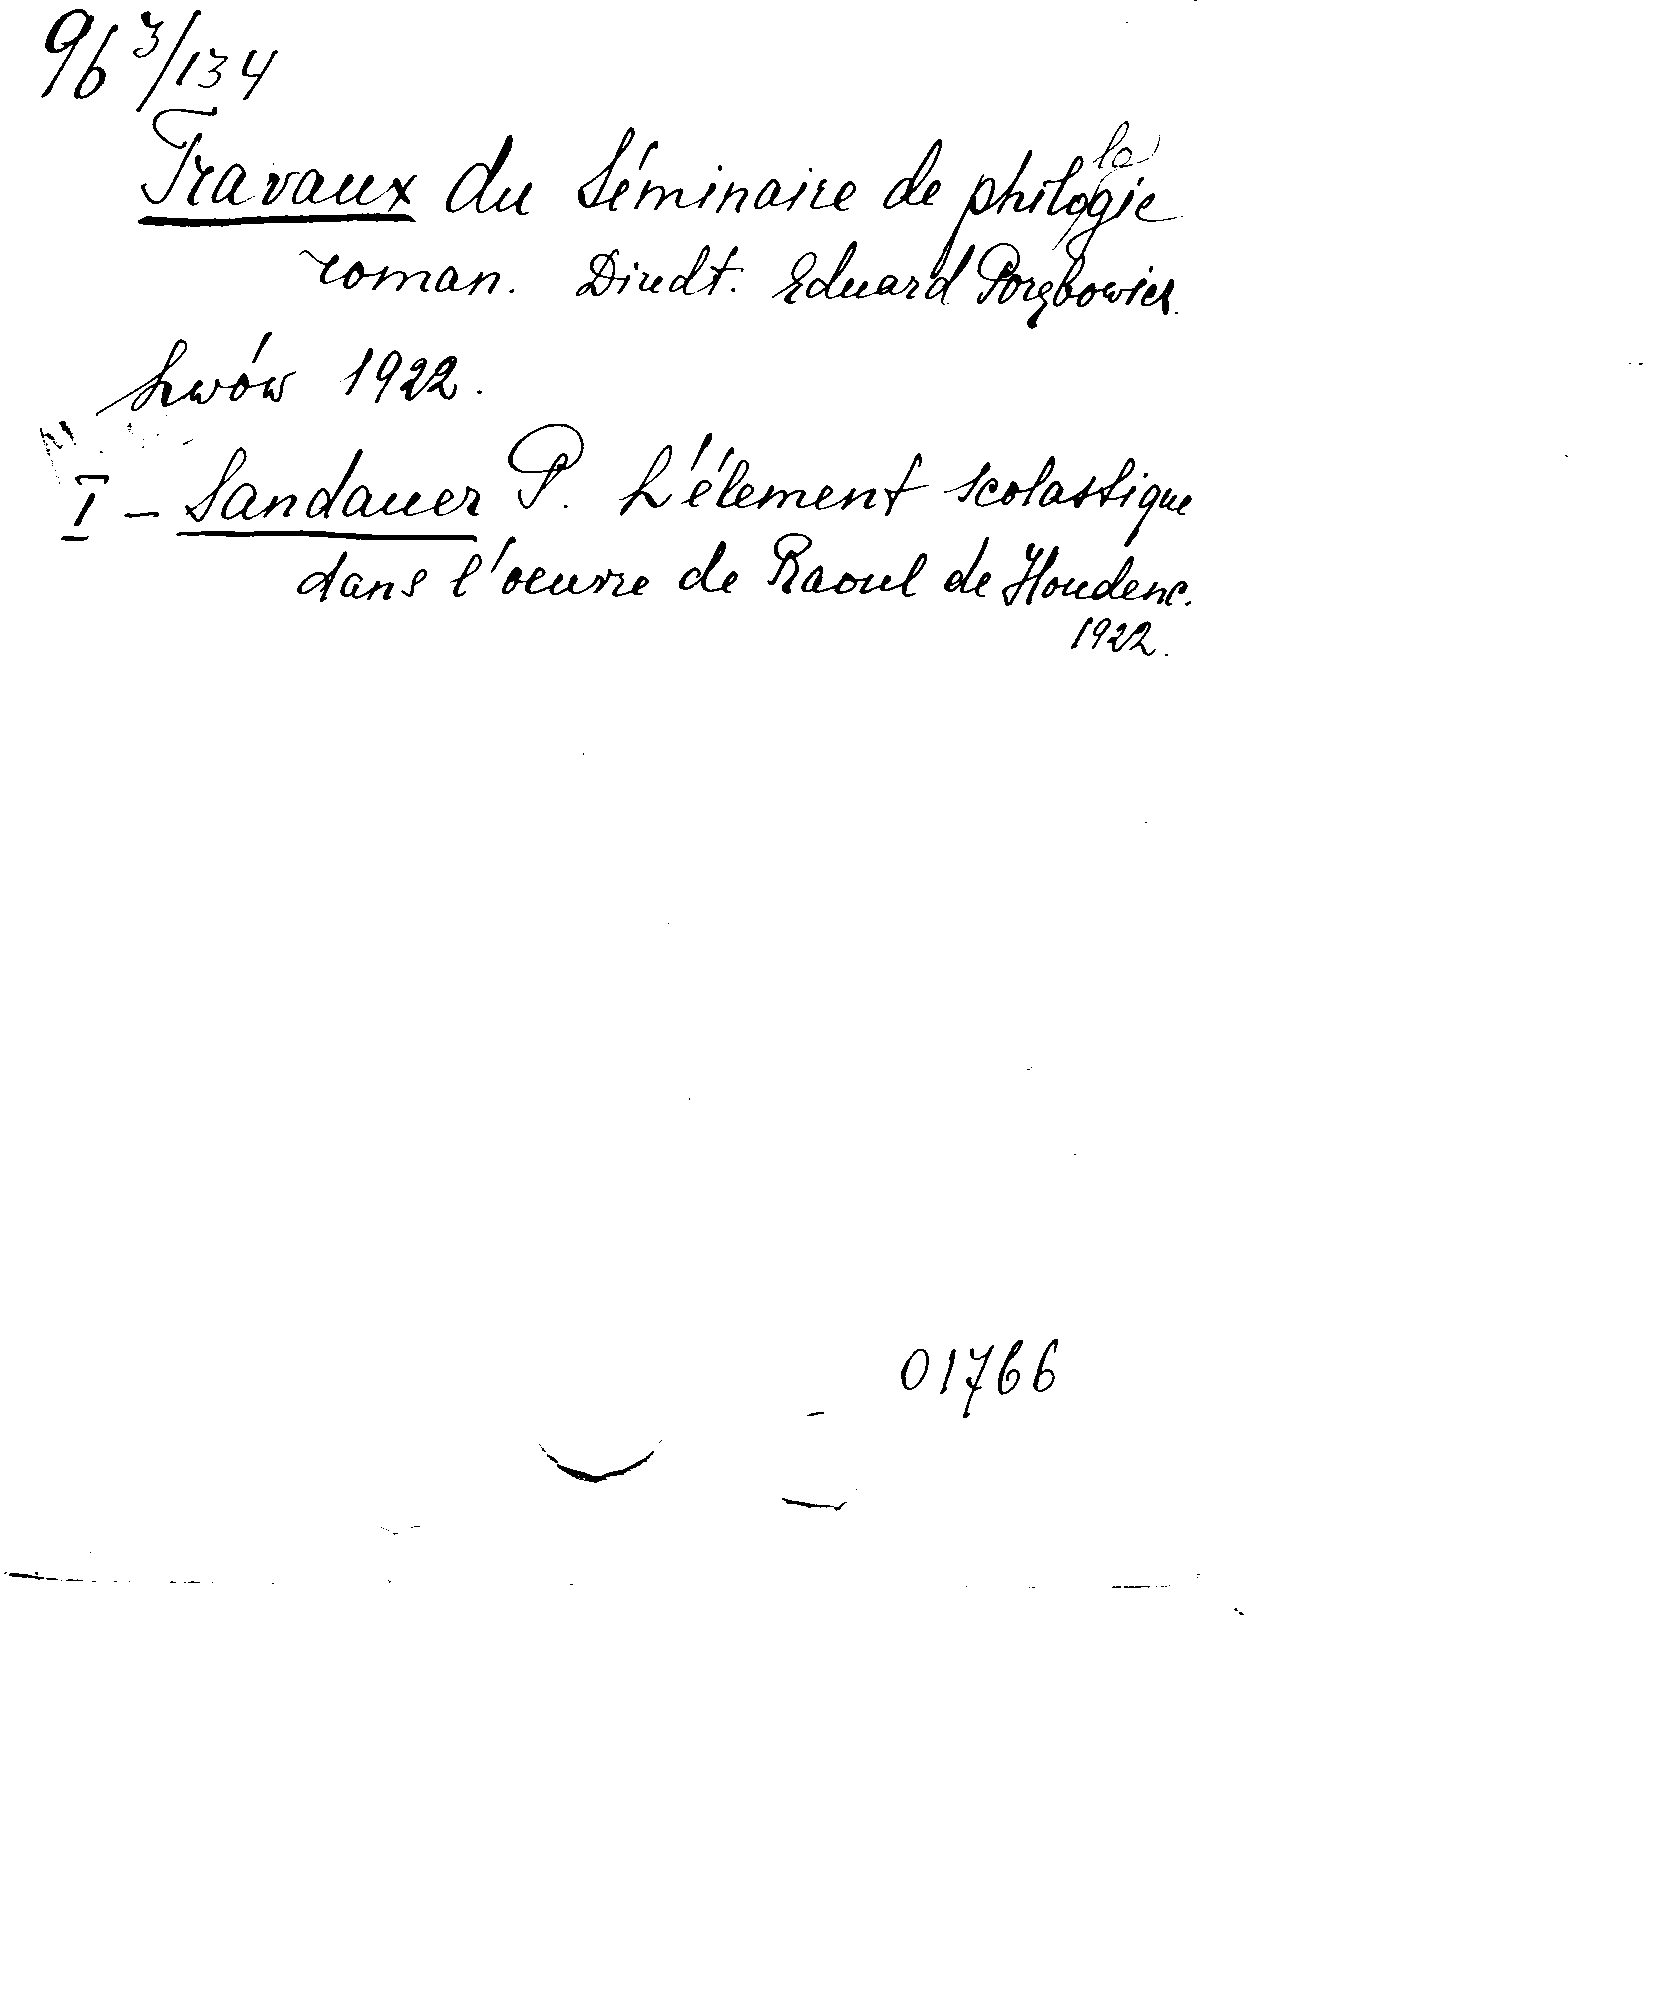 96 3/134
Travaux du Séminaire de philologie
roman. Diredt. Eduard Porębowicz.
Lwów 1922.
I - Sandauer P. L'élement scolastique
dans l'oeuvre de Raoul de Houdenc.
1922.
01766